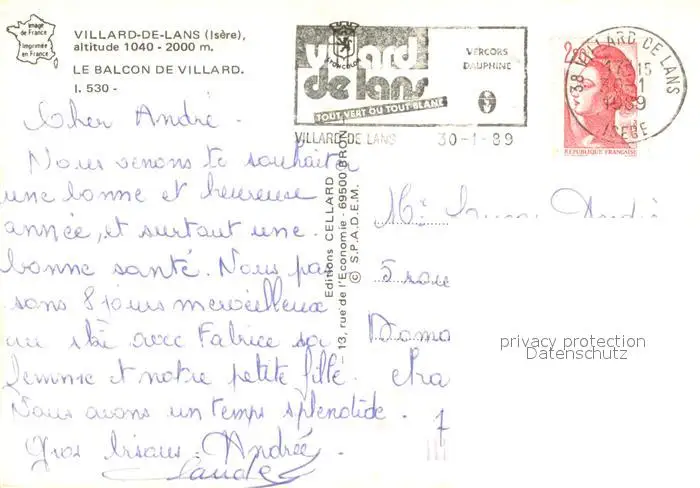 Image
de France
Imprimée
en France
VILLARD-DE-LANS (Isère),
altitude 1040 - 2000 m.
LE BALCON DE VILLARD.
I. 530 -
villard
de lans
TOUT VERT OU TOUT BLANC
VERCORS
DAUPHINE
VILLARD DE LANS 30-1-89
38 VILLARD DE LANS
ISERE
REPUBLIQUE FRANÇAISE
Cher André.
Nous venons te souhaiter
une bonne et heureuse
année, et surtout une
bonne santé. Nous pas
sons 8 jours merveilleux
au ski avec Fabrice sa
femme et notre petite fille.
Nous avons un temps splendide.
Gros bisous. Andrée
Claude
Editions CELLARD
13, rue de l'Economie - 69500 BRON
© S.P.A.D.E.M.
André
5
privacy protection
Datenschutz